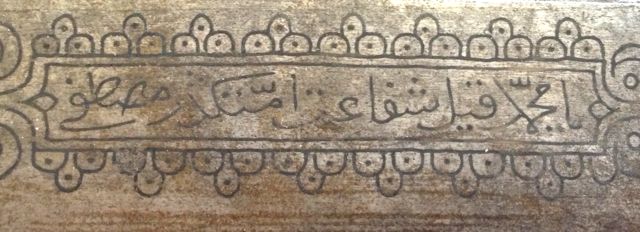 يا محمّد قيل شفاعت امّتكدر مصطفى